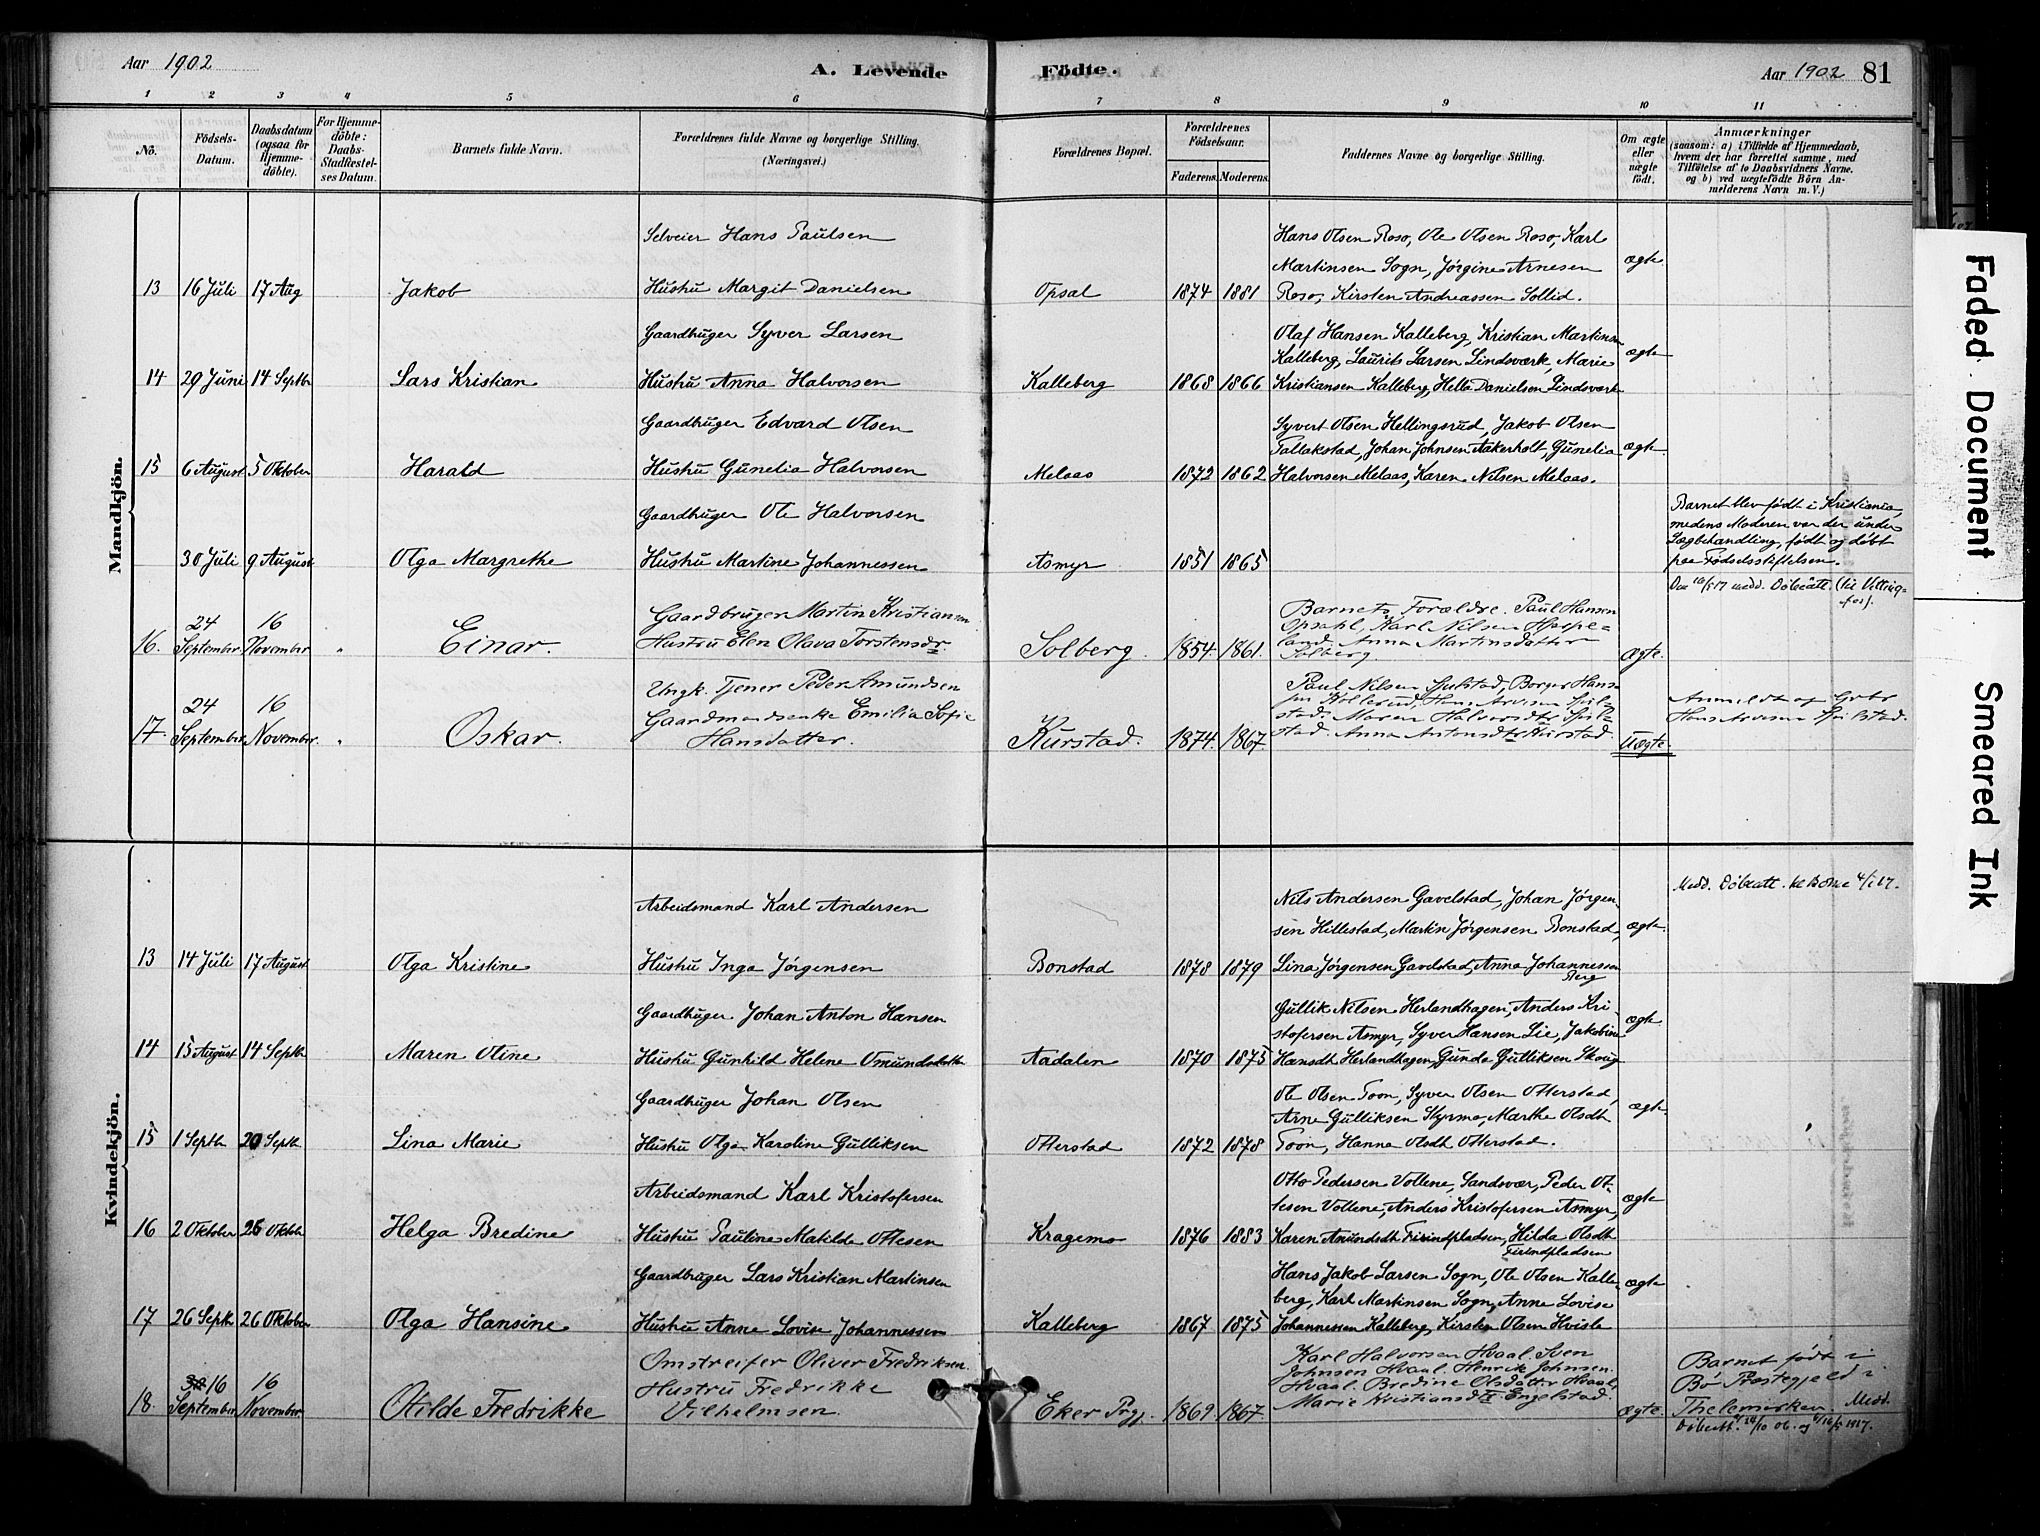 Aar 1902
A. Levende
Födte.
Aar 1902
81
1 2 3 4 5 6 7 8 9 10 11
No.
Födsels-
Datum.
Daabsdatum
(ogsaa for
Hjemme-
döbte).
For Hjemme-
döbte:
Daabs-
Stadfæstel-
ses Datum.
Barnets fulde Navn.
Forældrenes fulde Navne og borgerlige Stilling.
(Næringsvei.)
Forældrenes Bopæl.
Forældrenes
Födselsaar.
Faderens. Moderens.
Faddernes Navne og borgerlige Stilling.
Om ægte
eller
uægte
födt.
Anmærkninger
(saasom: a) i Tilfælde af Hjemmedaab,
hvem der har forrettet samme, med
Tilföielse af to Daabsvidners Navne.
og b) ved uægtefödte Börn An-
melderens Navn m. V.)
Mandkjön.
Selveier Hans Paulsen
13 16 Juli 17 Aug Jakob Hustru Margit Danielsen
Opsal 1874 1881
Hans Olsen Roso, Ole Olsen Roso, Karl
Martinsen Sogn, Jörgine Arnesen
Roso, Kirsten Andreassen Sollid.
ægte
Gaardbruger Syver Larsen
14 29 Juni 14 Septbr Lars Kristian Hustru Anna Halvorsen
Kalleberg 1868 1866
Olaf Hansen Kalleberg, Kristian Martinsen
Kalleberg, Laurits Larsen Lindsværk, Marie
Kristiansen Kalleberg, Helle Danielsen Lindsværk
ægte
Gaardbruger Edvard Olsen
15 6 August 5 Oktober Harald Hustru Gunelia Halvorsen
Melaas 1872 1862
Syvert Olsen Hellingsrud, Jakob Olsen
Tallakstad, Johan Johnsen Aakerholt, Gunelia
Halvorsen Melaas, Karen Nilsen Melaas.
ægte
Gaardbruger Ole Halvorsen
30 Juli 9 August Olga Margrethe Hustru Martine Johannessen
Asmyr 1851 1865
Barnet blev født i Kristiania,
medens Moderen var der under
Lægbehandling, født og døbt
paa Fødselsstiftelsen.
24 16
16. September. November " Einar.
Gaardbruger Martin Kristiansen
Hustru Elen Olava Torstensdr
Solberg. 1854. 1861.
Barnets Forældre. Paul Hansen
Opsahl, Karl Nilsen Haspe-
land. Anna Martinsdatter
Solberg.
Ægte.
24 16
17. September. November. " Oskar.
Ungk. Tjener Peder Amundsen
Gaardmandsenke Emilia Sofie
Hansdatter.
Kurstad. 1874. 1867
Paul Nilsen Spilstad, Borger Hans-
stad. Maren Halvorsdtr Spil-
stad. Anna Antonsdtr Kurstad.
Uægte.
Anmeldt og
Hans Arvesen Spilstad.
Kvindekjön.
Medd. Döbeatt.
Arbeidsmand Karl Andersen
13 14 Juli 17 August Olga Kristine Hustru Inga Jørgensen
Bonstad 1878 1879
Nils Andersen Gavelstad, Johan Jørgen-
sen Hillestad, Martin Jørgensen Bonstad,
Lina Jørgensen Gavelstad, Anna Johannessen
Berg
ægte
Gaardbruger Johan Anton Hansen
14 15 August 14 Septb Maren Otine Hustru Gunhild Helene Omundsdatter
Aadalen 1870 1875
Gullik Nilsen Herlandhagen, Anders Kri-
stofersen Asmyr, Syver Hansen Lie, Jakobine
Hansdt Herlandhagen, Gunda Gulliksen Skoug
ægte
Gaardbruger Johan Olsen
15 1 Septb Septb Lina Marie Hustru Olga Karoline Gulliksen
Otterstad 1872 1878
Ole Olsen Toon, Syver Olsen Otterstad,
Arne Gulliksen Styrmo, Marthe Olsdt
Toon, Hanna Olsdt Otterstad.
ægte
Arbeidsmand Karl Kristofersen
16 2 Oktober 26 Oktober Helga Bredine Hustru Pauline Matilde Ottesen
Kragemo 1876 1883
Otto Pedersen Vollene, Sandsvær, Peder Ot-
tesen Vollene, Anders Kristofersen Asmyr,
Karen Anundsdt Firindpladsen, Hilda Olsdt
Firindpladsen
ægte
Gaardbruger Lars Kristian Martinsen
17 26 Septb 26 Oktober Olga Hansine Hustru Anne Lovise Johannessen
Kalleberg 1867 1875
Hans Jakob Larsen Sogn, Ole Olsen Kalle-
berg, Karl Martinsen Sogn, Anne Lovise
Johannessen Kalleberg, Kirsten Olsen Hvisle
ægte
Omstreifer Oliver Fredriksen.
16 16
18. September November. Otilde Fredrikke
Hustru Fredrikke
Vilhelmsen.
Eker Prgj. 1869 1867
Karl Halvorsen Hvaal. Sven
Johnsen Hvaal. Henrik Johnsen
Hvaal. Bredine Olsdatter Hvaal.
Marie Kristiansdtr Engelstad.
ægte.
Barnet født i
Bø Præstegjeld i
Thelemarken. Medd.
Faded Document
Smeared Ink